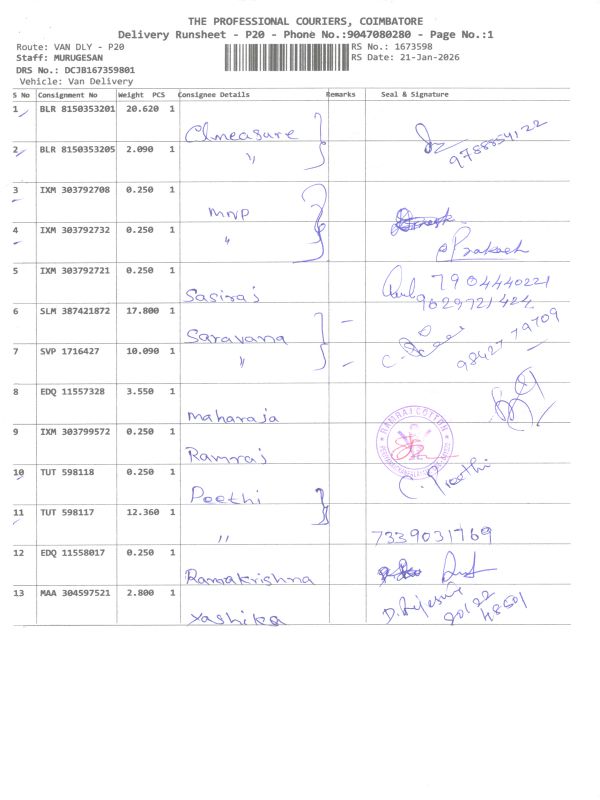 THE PROFESSIONAL COURIERS, COIMBATORE
Delivery Runsheet - P20 - Phone No.:9047080280 - Page No.:1
Route: VAN DLY - P20 RS No.: 1673598
Staff: MURUGESAN RS Date: 21-Jan-2026
DRS No.: DCJB167359801
Vehicle: Van Delivery
S No Consignment No Weight PCS Consignee Details Remarks Seal & Signature
1 BLR 8150353201 20.620 1
Clmeasure 9788854122
2 BLR 8150353205 2.090 1
"
3 IXM 303792708 0.250 1
MNP
4 IXM 303792732 0.250 1
" Prakash
5 IXM 303792721 0.250 1
Sasiraj 7904440221
9629721424
6 SLM 387421872 17.800 1
Saravana 98427 79709
7 SVP 1716427 10.090 1
"
8 EDQ 11557328 3.550 1
Maharaja
9 IXM 303799572 0.250 1
Ramraj RAMRAJ COTTON
10 TUT 598118 0.250 1
Peethi C. Preethi
11 TUT 598117 12.360 1
" 7339031769
12 EDQ 11558017 0.250 1
Ramakrishna
13 MAA 304597521 2.800 1
Yashika